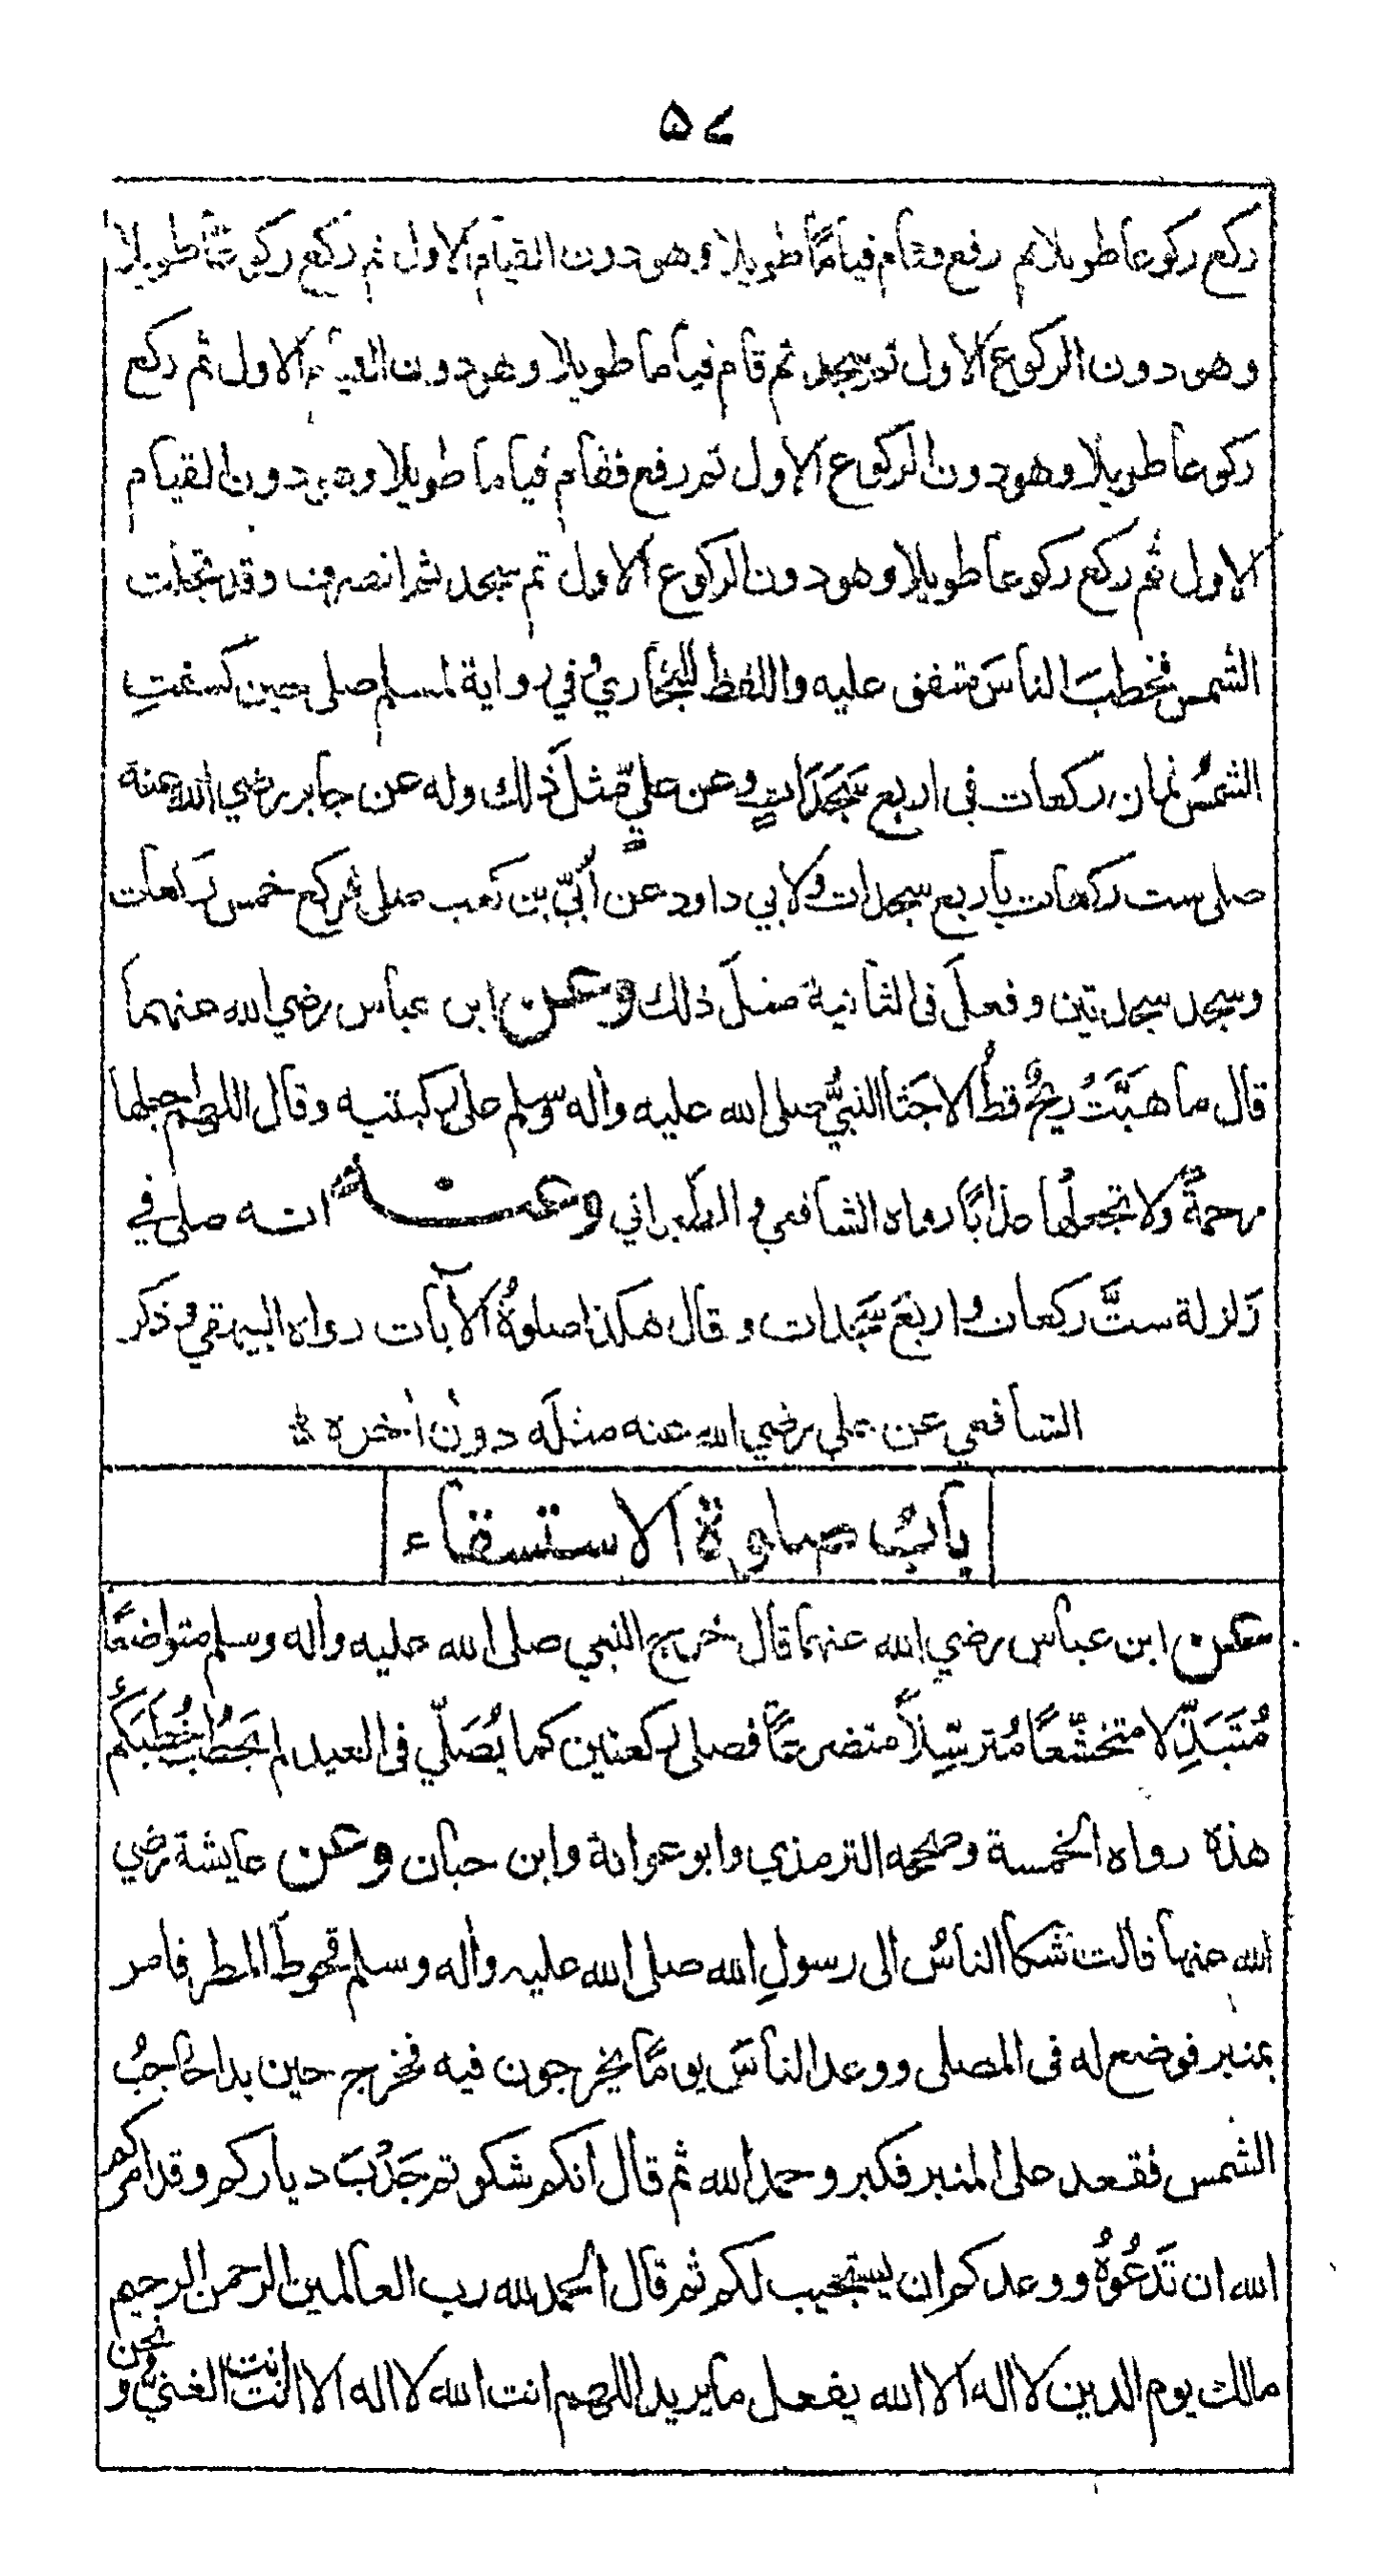 ۵۷
ركع ركوعا طويلا ثم رفع فقام قياما طويلا وهو دون القيام الاول ثم ركع ركوعا طويلا
وهو دون الركوع الاول ثم سجد ثم قام قياما طويلا وهو دون القيام الاول ثم ركع
ركوعا طويلا وهو دون الركوع الاول ثم رفع فقام قياما طويلا وهو دون القيام
الاول ثم ركع ركوعا طويلا وهو دون الركوع الاول ثم سجد ثم انصرف وقد تجلت
الشمس فخطبَ الناسَ متفق عليه واللفظ للبخاري وفي رواية لمسلم صلى حين كسفتِ
الشمسُ ثمان ركعات فى اربع سَجَدَاتٍ وعن عليٍّ مثلَ ذلك وله عن جابر رضي الله عنه
صلى ست ركعات باربع سجدات ولابي داود عن اُبَيّ بن كعب صلى فركع خمس ركعات
وسجد سجدتين وفعلَ فى الثانية مثلَ ذلك وعن ابن عباس رضي الله عنهما
قال ما هَبَّتُ ريحٌ قطُّ الا جَثَا النبيُّ صلى الله عليه واٰله وسلم على ركبتيه وقال اللهم اجعلها
رحمةً ولا تجعلْها عذابًا رواه الشافعي والطبراني وعنه انه صلى في
زلزلة ستَّ ركعات واربعَ سَجَدات وقال هكذا صلوةُ الآيات رواه البيهقي وذكر
الشافعي عن علي رضي الله عنه مثلَه دون اٰخره
بابُ صلوة الاستسقاء
عن ابن عباس رضي الله عنهما قال خرج النبي صلى الله عليه واٰله وسلم متواضعًا
مُتَبَذِّلا متخشّعًا مُترسِّلاً متضرعًا فصلى ركعتين كما يُصَلّي فى العيد لم يخطُب خُطبَتَكُم
هذه رواه الخمسة وصححه الترمذي وابو عوانة وابن حبان وعن عايشة رضي
الله عنها قالت شكا الناسُ الى رسولِ الله صلى الله عليه واٰله وسلم قحوطَ المطر فامر
بمنبر فوضع له فى المصلى ووعد الناسَ يومًا يخرجون فيه فخرج حين بدا حاجبُ
الشمس فقعد على المنبر فكبر وحمد الله ثم قال انكم شكوتم جَدْبَ دياركم وقد امركم
الله ان تَدْعُوْهُ ووعدكم ان يستجيب لكم ثم قال الحمد لله رب العالمين الرحمن الرحيم
مالك يوم الدين لا اله الا الله يفعل ما يريد اللهم انت الله لا اله الا انت انت الغنيُّ ونحن